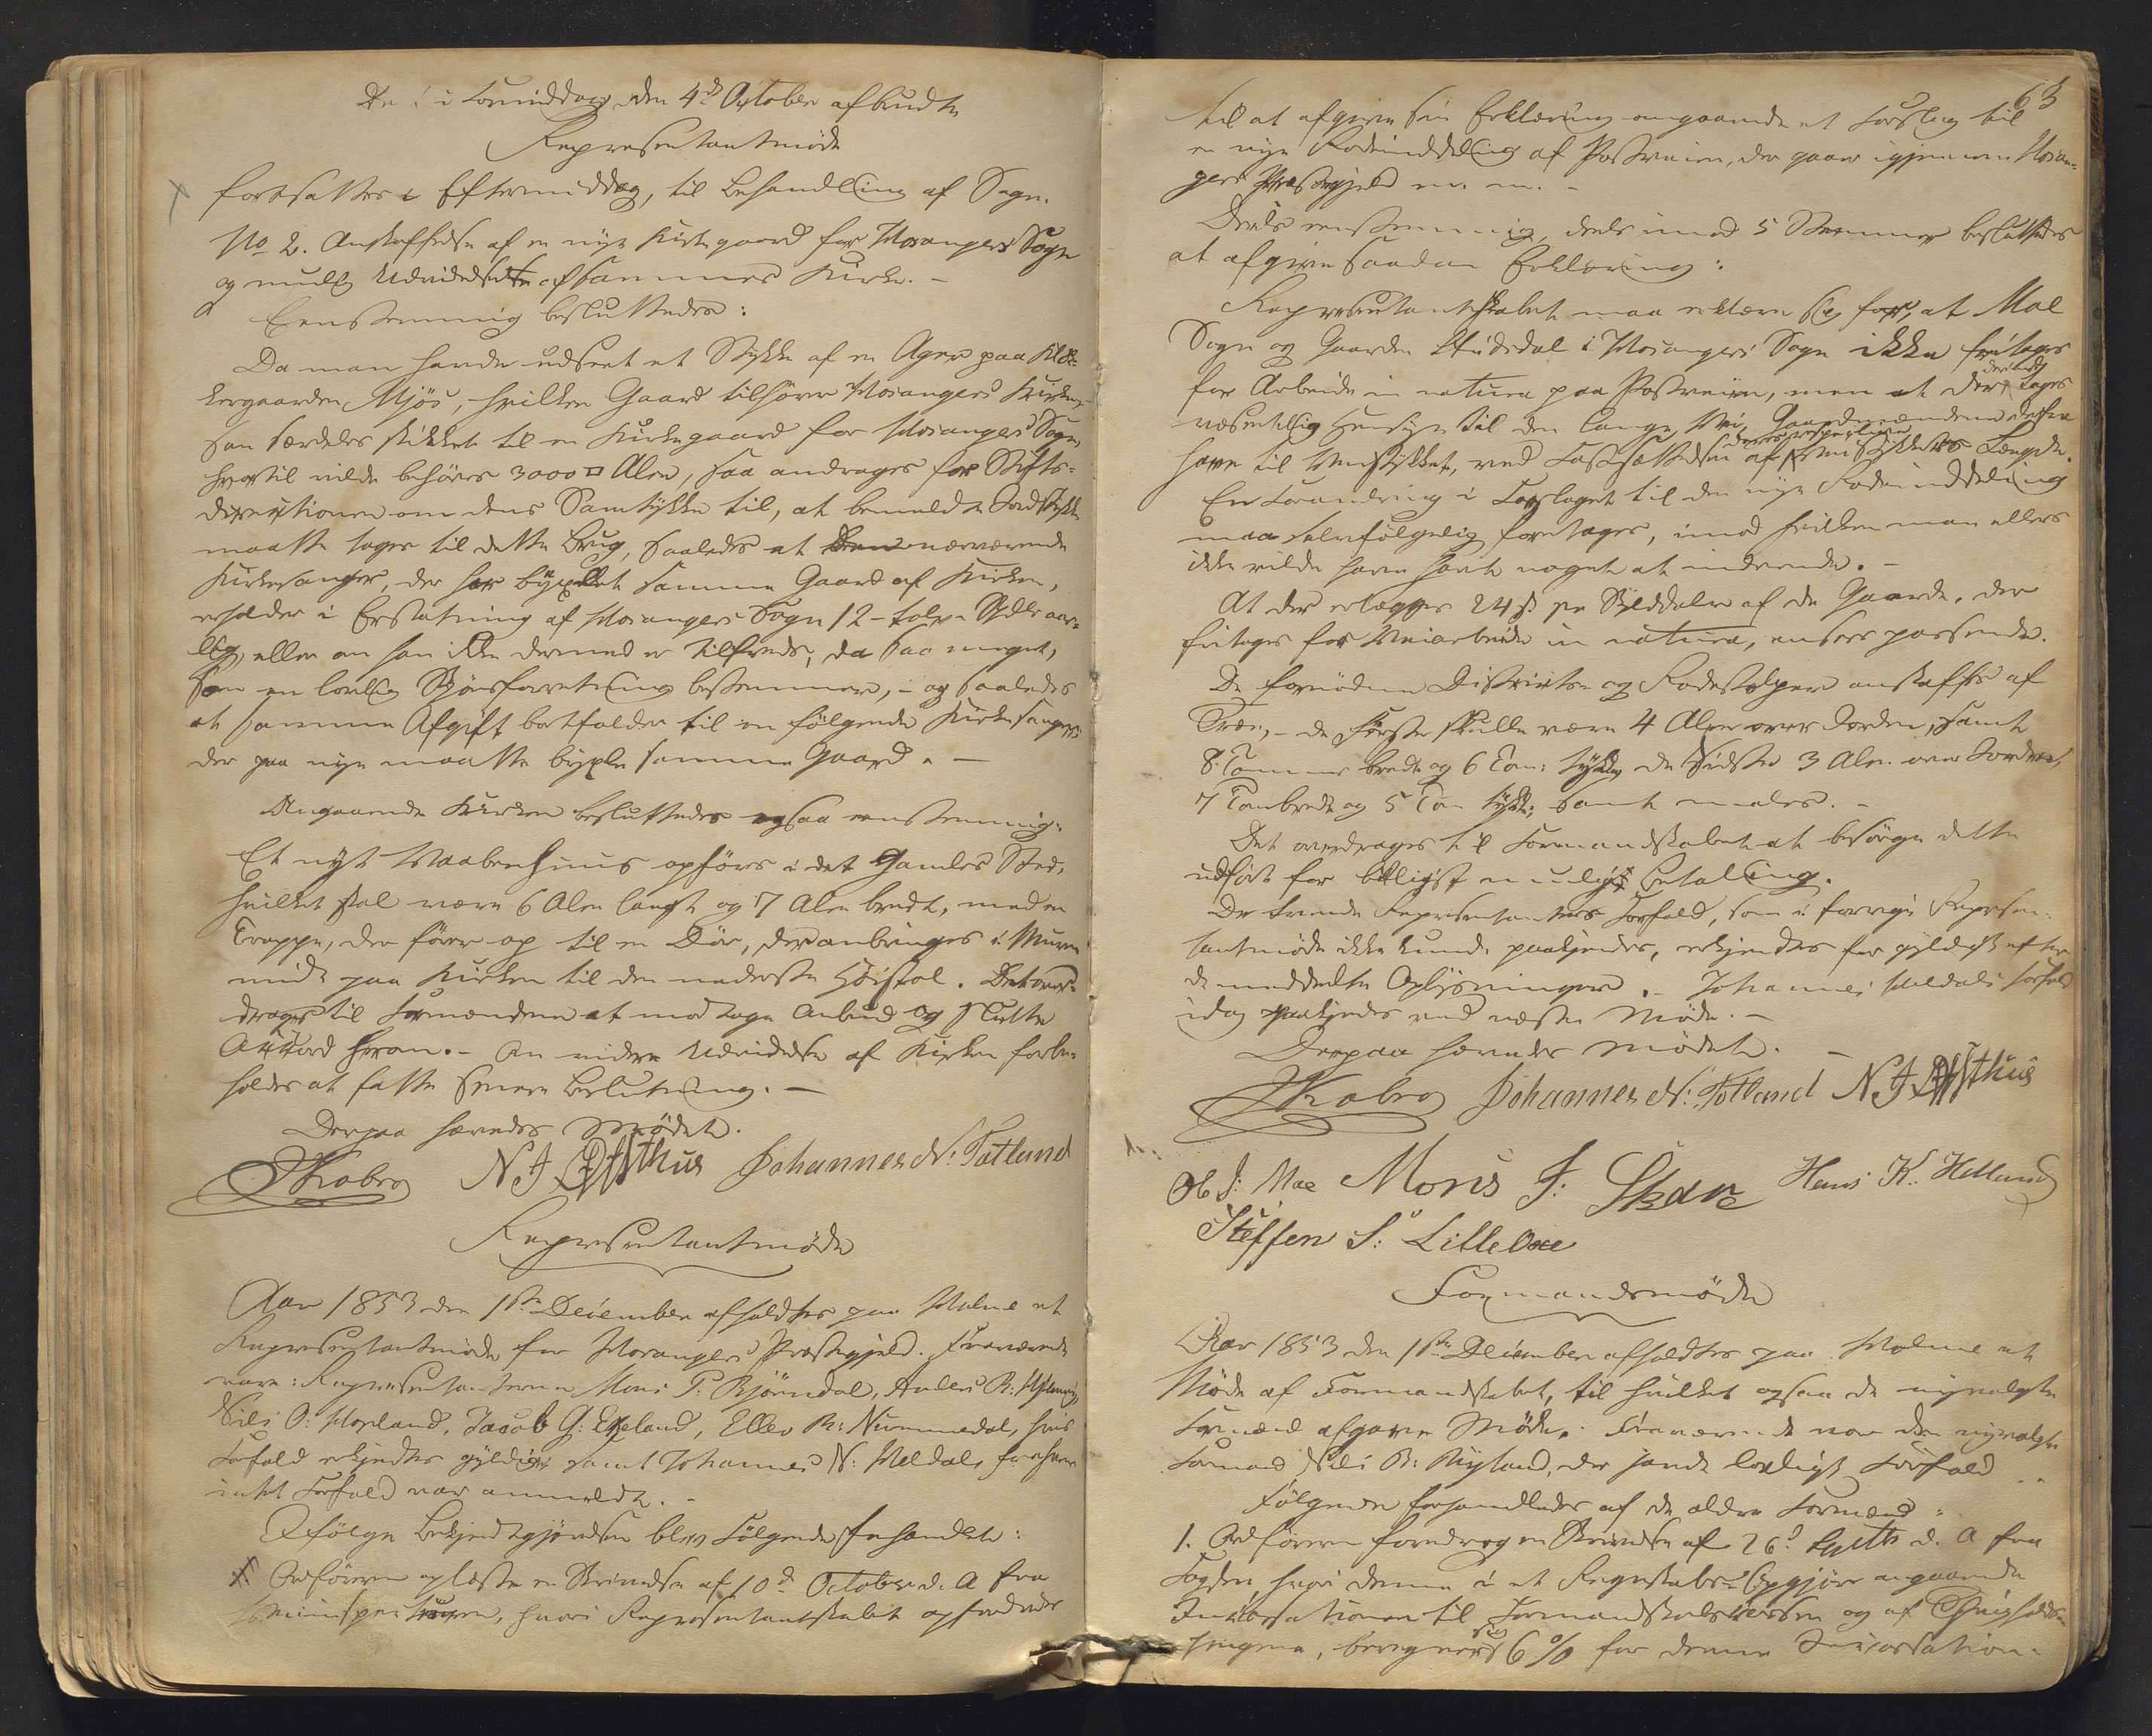 De i Formiddag den 4de October afbrudte
Representantmøde
fortsattes i Eftermiddag, til Behandling af Sagn.
No 2. Anskaffelse af en nye Kirkegaard for Mosangers Sogn
og mulig Udvidelse af sammes Kirke. –
Eenstemmig besluttedes:
Da man havde udseet et Stykke af en Ager paa Klok-
kergaarden Mjøs, hvilken Gaard tilhører Mosangers Kirke,
som særdeles skikket til en Kirkegaard for Mosangers Sogn,
hvortil vilde behøves 3000 □ Alen, saa andrages for Stifts-
direktionen om dens Samtykke til, at bemeldte Jordstykke
maatte tages til dette Brug, saaledes at den nærværende
Kirkesanger, der har byxlet samme Gaard af Kirken,
erholder i Erstatning af Mosangers Sogn 12 – tolv – Spdlr aar-
lig, eller om han ikke dermed er tilfreds, da saa meget,
som en lovlig Skjønsforretning bestemmer, – og saaledes
at samme Afgift bortfalder til en følgende Kirkesanger,
der paa nye maatte byxle samme Gaard. –
Angaaende Kirken besluttedes ogsaa eenstemmig:
Et nyt Vaabenhuus opføres i det Gamles Sted,
hvilket skal være 6 Alen langt og 7 Alen bredt, med en
Trappe, der fører op til en Dør, der anbringes i Muren
midt paa Kirken til den nederste Gulstol. Det over-
drages til Formændene at modtage Anbud og slutte
Akkord herom. – Om videre Udvidelse af Kirken forbe-
holdes at fatte senere Beslutning. –
Derpaa hævedes Mødet.
JKobro N J Ofsthus Johannes N: Totland
Representantmøde
Aar 1853 den 1ste December afholdtes paa Molme et
Representantmøde for Mosangers Præstegjeld. Fraværende
vare: Representanterne Mons P: Bjørndal, Anders R:
Nils O: Mopland, Jacob G: Eikeland, Ellev R: Nummedal, hvis
Forfald erkjendtes gyldigt samt Johannes N: Meldal, for hvem
intet Forfald var anmeldt. –
Ifølge Bekjendtgjørelse blev Følgende forhandlet:
1. Ordføreren oplæste en Skrivelse af 10de October d. A fra
Veiinspecteuren, hvori Representantskabet opfordredes
63
til at afgive sin Erklæring angaaende et Forslag til
en nye Rodeinddeling af Postveien, der gaaer igjennem Mosan-
gers Præstegjeld m. m. –
Deels eenstemmig, deels imod 5 Stemmer besluttedes
at afgive saadan Erklæring:
Representantskabet maa erklære sig for, at Moe
Sogn og Gaarden Studsdal i Mosangers Sogn ikke fritages
for Arbeide in natura paa Postveien, men at der derved tages
væsentlig Hensyn til den lange Vei, Gaardmændene derfra
have til Veistykket, ved Fastsættelsen af deres respective Veistykkers Længde.
En Forandring i Forslaget til den nye Rodeinddeling
maa selvfølgelig foretages, imod hvilken man ellers
ikke vilde have havt noget at indvende. –
At der erlægges 24 ß pr Skylddaler af de Gaarde, der
fritages for Veiarbeide in natura, ansees passende.
De fornødne Districts- og Rodestolper anskaffes af
Træe, – de første skulle være 4 Alen over Jorden, samt
8 Tommer brede og 6 Tom: tykke, de sidste 3 Alen over Jorden,
7 Tom brede og 5 Tom tykke, samt males. –
Det overdrages til Formandskabet at besørge dette
udført for billigst mulig Betaling.
De trende Representanters Forfald, som i forrige Represen-
tantmøde ikke kunde paakjendes, erkjendtes for gyldigt efter
de meddelte Oplysninger. – Johannes Meldals Forfald
idag paakjendes ved næste Møde. –
Derpaa hævedes Mødet. –
JKobro Johannes N: Totland N J Ofsthus
Ole J: Moe Mons J: Skar Hans K. Helland
Steffen S: LilleOxe
Formandsmøde
Aar 1853 den 1ste December afholdtes paa Molme et
Møde af Formandskabet, til hvilket ogsaa de nyvalgte
Formænd afgave Møde. Fraværende var den nyvalgte
Formand Nils R: Myland, der havde lovligt Forfald. –
Følgende forhandledes af de ældre Formænd:
1. Ordføreren foredrog en Skrivelse af 26de Septb d. A fra
Fogden, hvori denne i et Regnskabs-Opgjør angaaende
Incassationen til Formandskabskassen og af Thingholds-
pengene, beregner sig 6 % for denne Incassation.